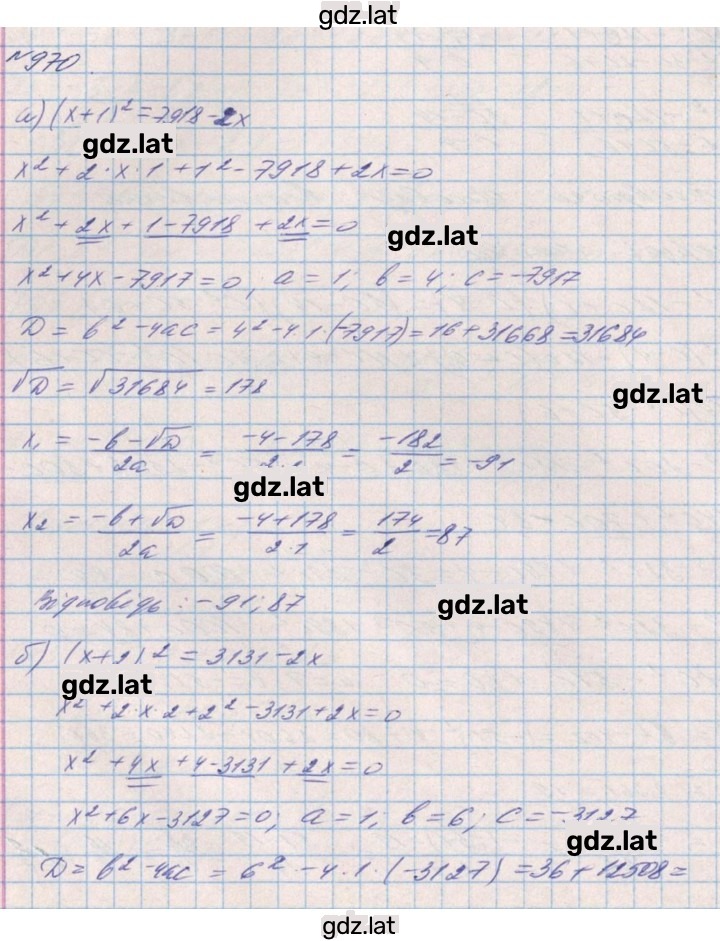 gdz.lat
№970.
а) (x+1)² = 7918 - 2x
gdz.lat
x² + 2·x·1 + 1² - 7918 + 2x = 0
x² + 2x + 1 - 7918 + 2x = 0
gdz.lat
x² + 4x - 7917 = 0; a = 1; b = 4; c = -7917
D = b² - 4ac = 4² - 4·1·(-7917) = 16 + 31668 = 31684
√D = √31684 = 178
gdz.lat
x₁ = (-b - √D)/2a = (-4 - 178)/2·1 = -182/2 = -91
gdz.lat
x₂ = (-b + √D)/2a = (-4 + 178)/2·1 = 174/2 = 87
Відповідь: -91; 87
gdz.lat
б) (x+2)² = 3131 - 2x
gdz.lat
x² + 2·x·2 + 2² - 3131 + 2x = 0
x² + 4x + 4 - 3131 + 2x = 0
x² + 6x - 3127 = 0; a = 1; b = 6; c = -3127
gdz.lat
D = b² - 4ac = 6² - 4·1·(-3127) = 36 + 12508 =
gdz.lat